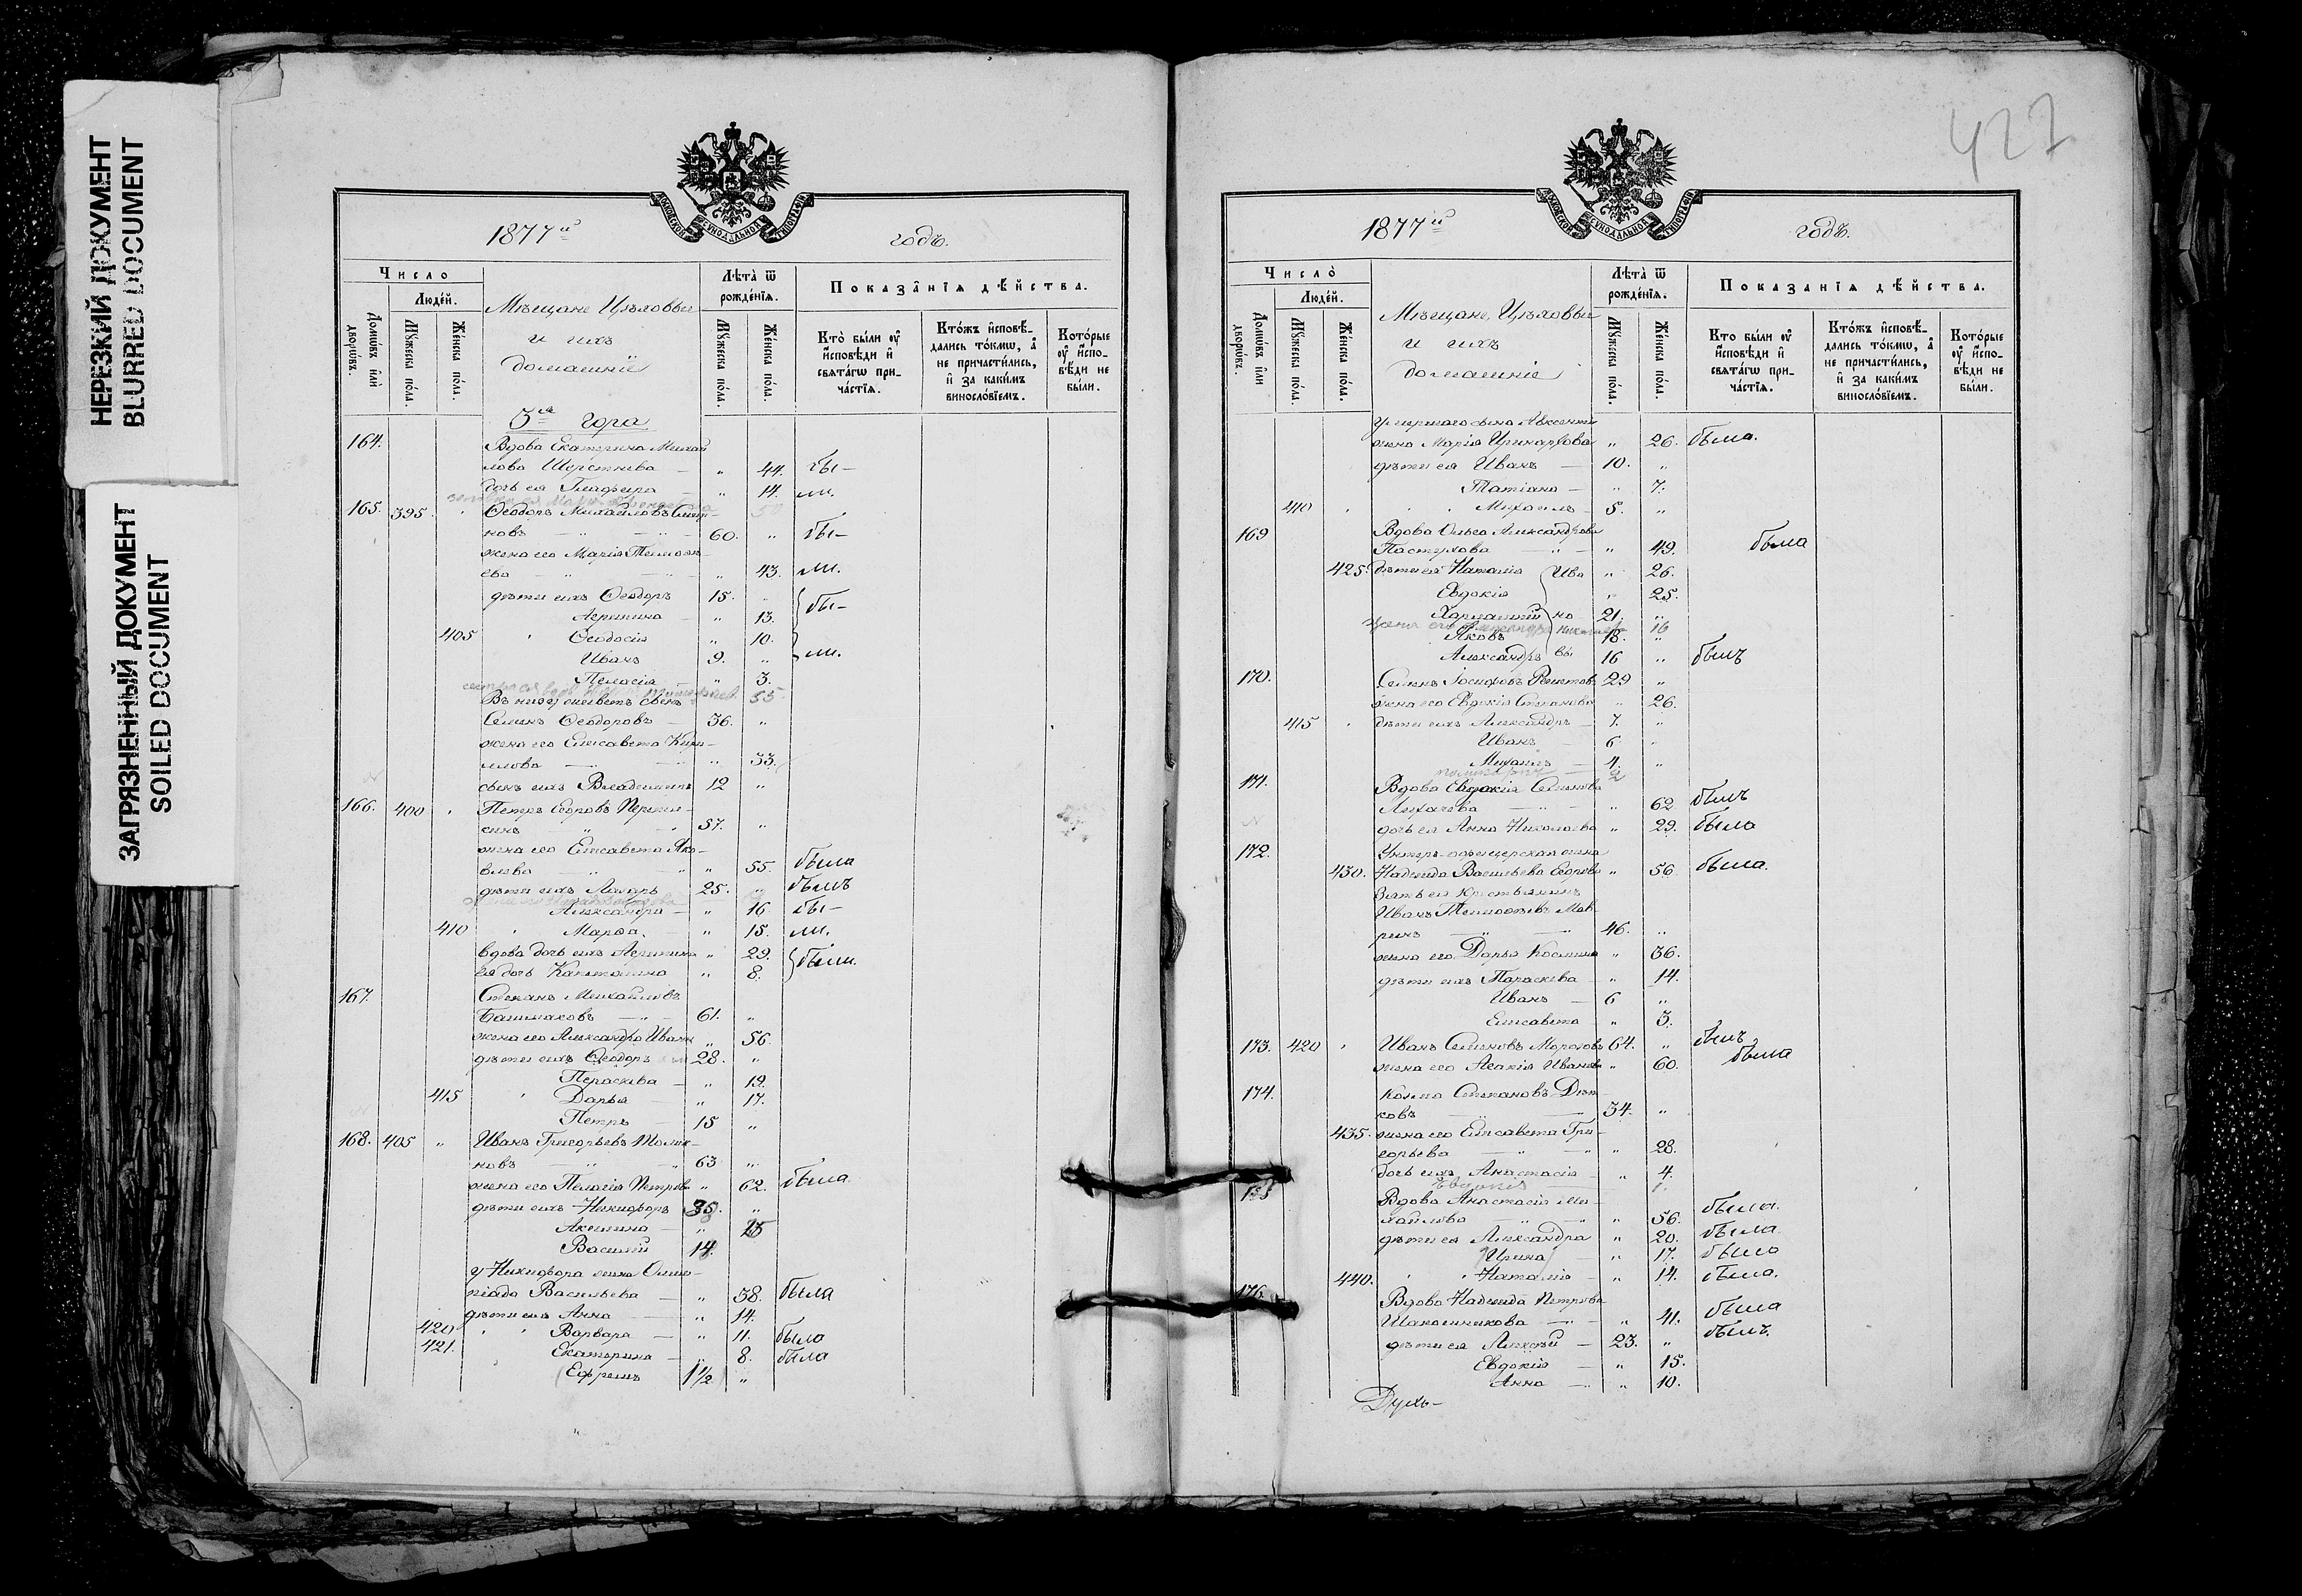 НЕРЕЗКИЙ ДОКУМЕНТ
BLURRED DOCUMENT
ЗАГРЯЗНЕННЫЙ ДОКУМЕНТ
SOILED DOCUMENT
МОСКОВСКОЙ СѴНОДАЛЬНОЙ ТИПОГРАФІИ
1877й годъ.
Число
Людей.
Домовъ или дворовъ.
Мужеска пола.
Женска пола.
Мѣщане Цѣховые
и ихъ
домашніе
Лѣта ѿ рожденія.
Мужеска пола.
Женска пола.
Показанія дѣйства.
Кто были ѹ исповѣди и святагѡ причастія.
Ктожъ исповѣдались токмѡ, а не причастились, и за какимъ винословіемъ.
Которые ѹ исповѣди не были.
3я гора
164. Вдова Екатерина Михай
лова Шерстнева — " 44. бы-
дочь ея Глафира — " 14. ли.
165. 395. " Ѳеодоръ Михайловъ
новъ — " — 60. " бы-
жена его Марія Тимоѳѣ-
ева — " — " 43. ли.
дѣти ихъ Ѳеодоръ 15. "
Агрипина — " 13. бы-
405 " Ѳеодосія " 10.
Иванъ 9. " ли.
Пелагія — " 3.
55
Въ низу живетъ сынъ
Семенъ Ѳеодоровъ — 36. "
жена его Елисавета Кири-
лова — " 33.
сынъ ихъ Владиміръ 12 "
166. 400 " Петръ Егоровъ
синъ — " — 57. "
жена его Елисавета Яко-
влева — " — " 55. была
дѣти ихъ Лазарь 25. " былъ
Александра — " 16 бы-
410 " Марѳа. — " 15. ли.
вдова дочь ихъ Агрипина " 29.
ея дочь Капитолина " 8. были.
167. Стефанъ Михайловъ
Башмаковъ — " — 61. "
жена его Александра Иван " 56.
дѣти ихъ Ѳеодоръ 28. "
Параскева — " 19.
415 " Дарья — " 17.
Петръ — 15 "
168. 405 " Иванъ Григорьевъ
новъ — " — 63 "
жена его Пелагія Петрова " 62. была
дѣти ихъ Никифоръ "
Акилина — " 25
Василій 14.
у Никифора жена Олим-
піада Васильева — " 38. была
дѣти ихъ Анна — " 14.
420 " " Варвара — " 11. была
421. Екатерина — " 8. была
Ефремъ 1½ "
427
1877й годъ.
Число
Людей.
Домовъ или дворовъ.
Мужеска пола.
Женска пола.
Мѣщане, Цѣховые
и ихъ
домашніе
Лѣта ѿ рожденія.
Мужеска пола.
Женска пола.
Показанія дѣйства.
Кто были ѹ исповѣди и святагѡ причастія.
Ктожъ исповѣдались токмѡ, а не причастились, и за какимъ винословіемъ.
Которые ѹ исповѣди не были.
умершаго сына Авксентія
жена Марія Иринархова " 26. была.
дѣти ея Иванъ — 10. "
Татіана — " 7.
410 " " Михаилъ — 5. "
169 Вдова Ольга Александрова
Пастухова — " — " 49. была
425. дѣти ея Наталія Ива " 26.
Евдокія " 25.
но 21. "
16
Яковъ 18. "
Александръ вы 16 " былъ
170. Семенъ Іосифовъ Решетовъ 29 "
жена его Евдокія Степанова " 26.
415 " дѣти ихъ Александръ — 7. "
Иванъ — 6 "
Михаилъ — 4. "
2
171. Вдова Евдокія Семенова
Лихачева — " — " 62 былъ
дочь ея Анна Николаева " 29. была
172. Унтеръ-офицерская жена
430. Надежда Васильева Егорова " 56 была.
Зять ея Крестьянинъ
Иванъ Тимоѳѣевъ Мав-
ринъ — " — 46. "
жена его Дарья Косьмина " 36.
дѣти ихъ Параскева — " 14.
Иванъ — 6 "
Елисавета — " 3.
173. 420 " Иванъ Семеновъ Морозовъ 64. " былъ
жена его Агапія Иванова " 60. была
174. Козьма Степановъ
ковъ — " — 34. "
435. жена его Елисавета Гри-
горьева — " — " 28.
дочь ихъ Анастасія — " 4.
Евдокія 1.
Вдова Анастасія Ми-
хайлова — " — " 56. была.
дѣти ея Александра " 20. была.
Ирина — " 17. была
440. " " Наталія — " 14. была.
176. Вдова Надежда Петрова
Шапошникова — " — " 41. была
дѣти ея Алексѣй — 23. " былъ.
Евдокія — " 15.
Анна — " 10.
Духъ-